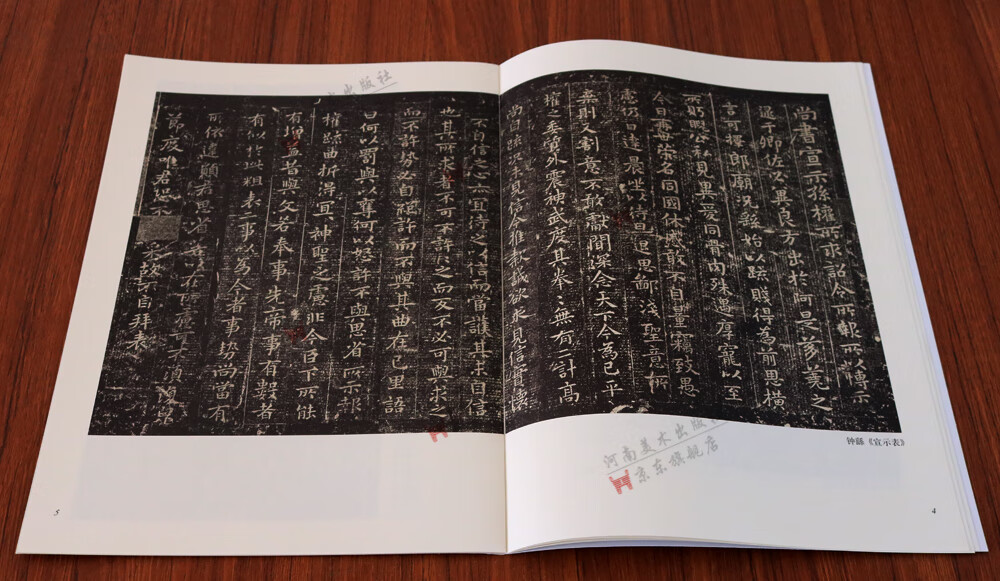 尚書宣示孫權所求詔令所報所以博示
逮于卿佐必異良方出於阿是芻蕘之
言可擇郎廟況繇始以疏賤得為前恩橫
所盻睨公私見異愛同骨肉殊遇厚寵以至
今日再世榮名同國休慼敢不自量竊致愚
慮仍日達晨坐以待旦退思鄙淺聖意所
棄則又割意不敢獻聞深念天下今為已平
權之委質外震神武度其拳々無有二計高
尚自疏況未見信今推款誠欲求見信實懷
不自信之心亦宜待之以信而當護其未自信
也其所求者不可不許許之而反不必可與求之
而不許勢必自絕許而不與其曲在己里語
曰何以罰與以奪何以怒許不與思省所示報
權疏曲折得宜神聖之慮非今臣下所能
有增益昔與文若奉事先帝事有數者
有似於此粗表二事以為今者事勢尚當有
所依違願君思省若以在所慮可不須復
節度唯君恐不可采故不自拜表
钟繇《宣示表》
4
5
河南美术出版社
京东旗舰店
出版社